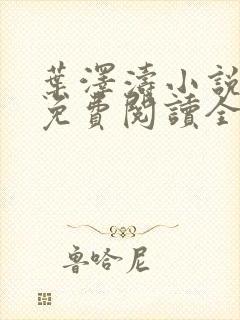 葉澤濤小說
免費閱讀全
魯哈尼